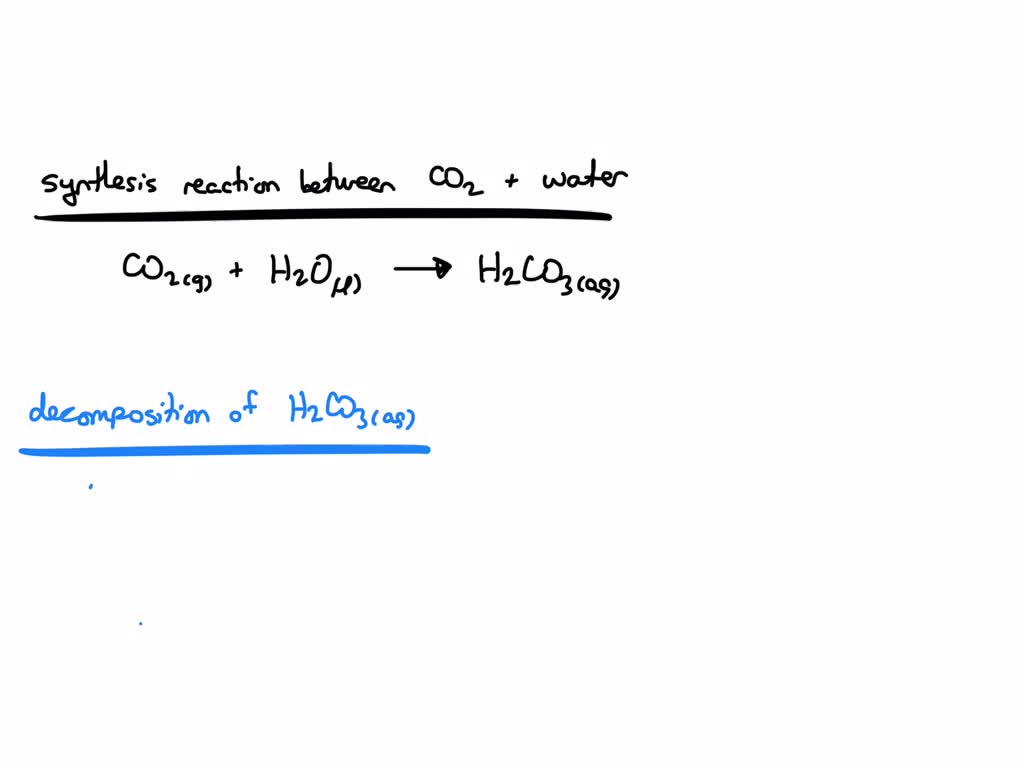 synthesis reaction between CO₂ + water
CO₂(g) + H₂O(l) → H₂CO₃(aq)
decomposition of H₂CO₃(aq)